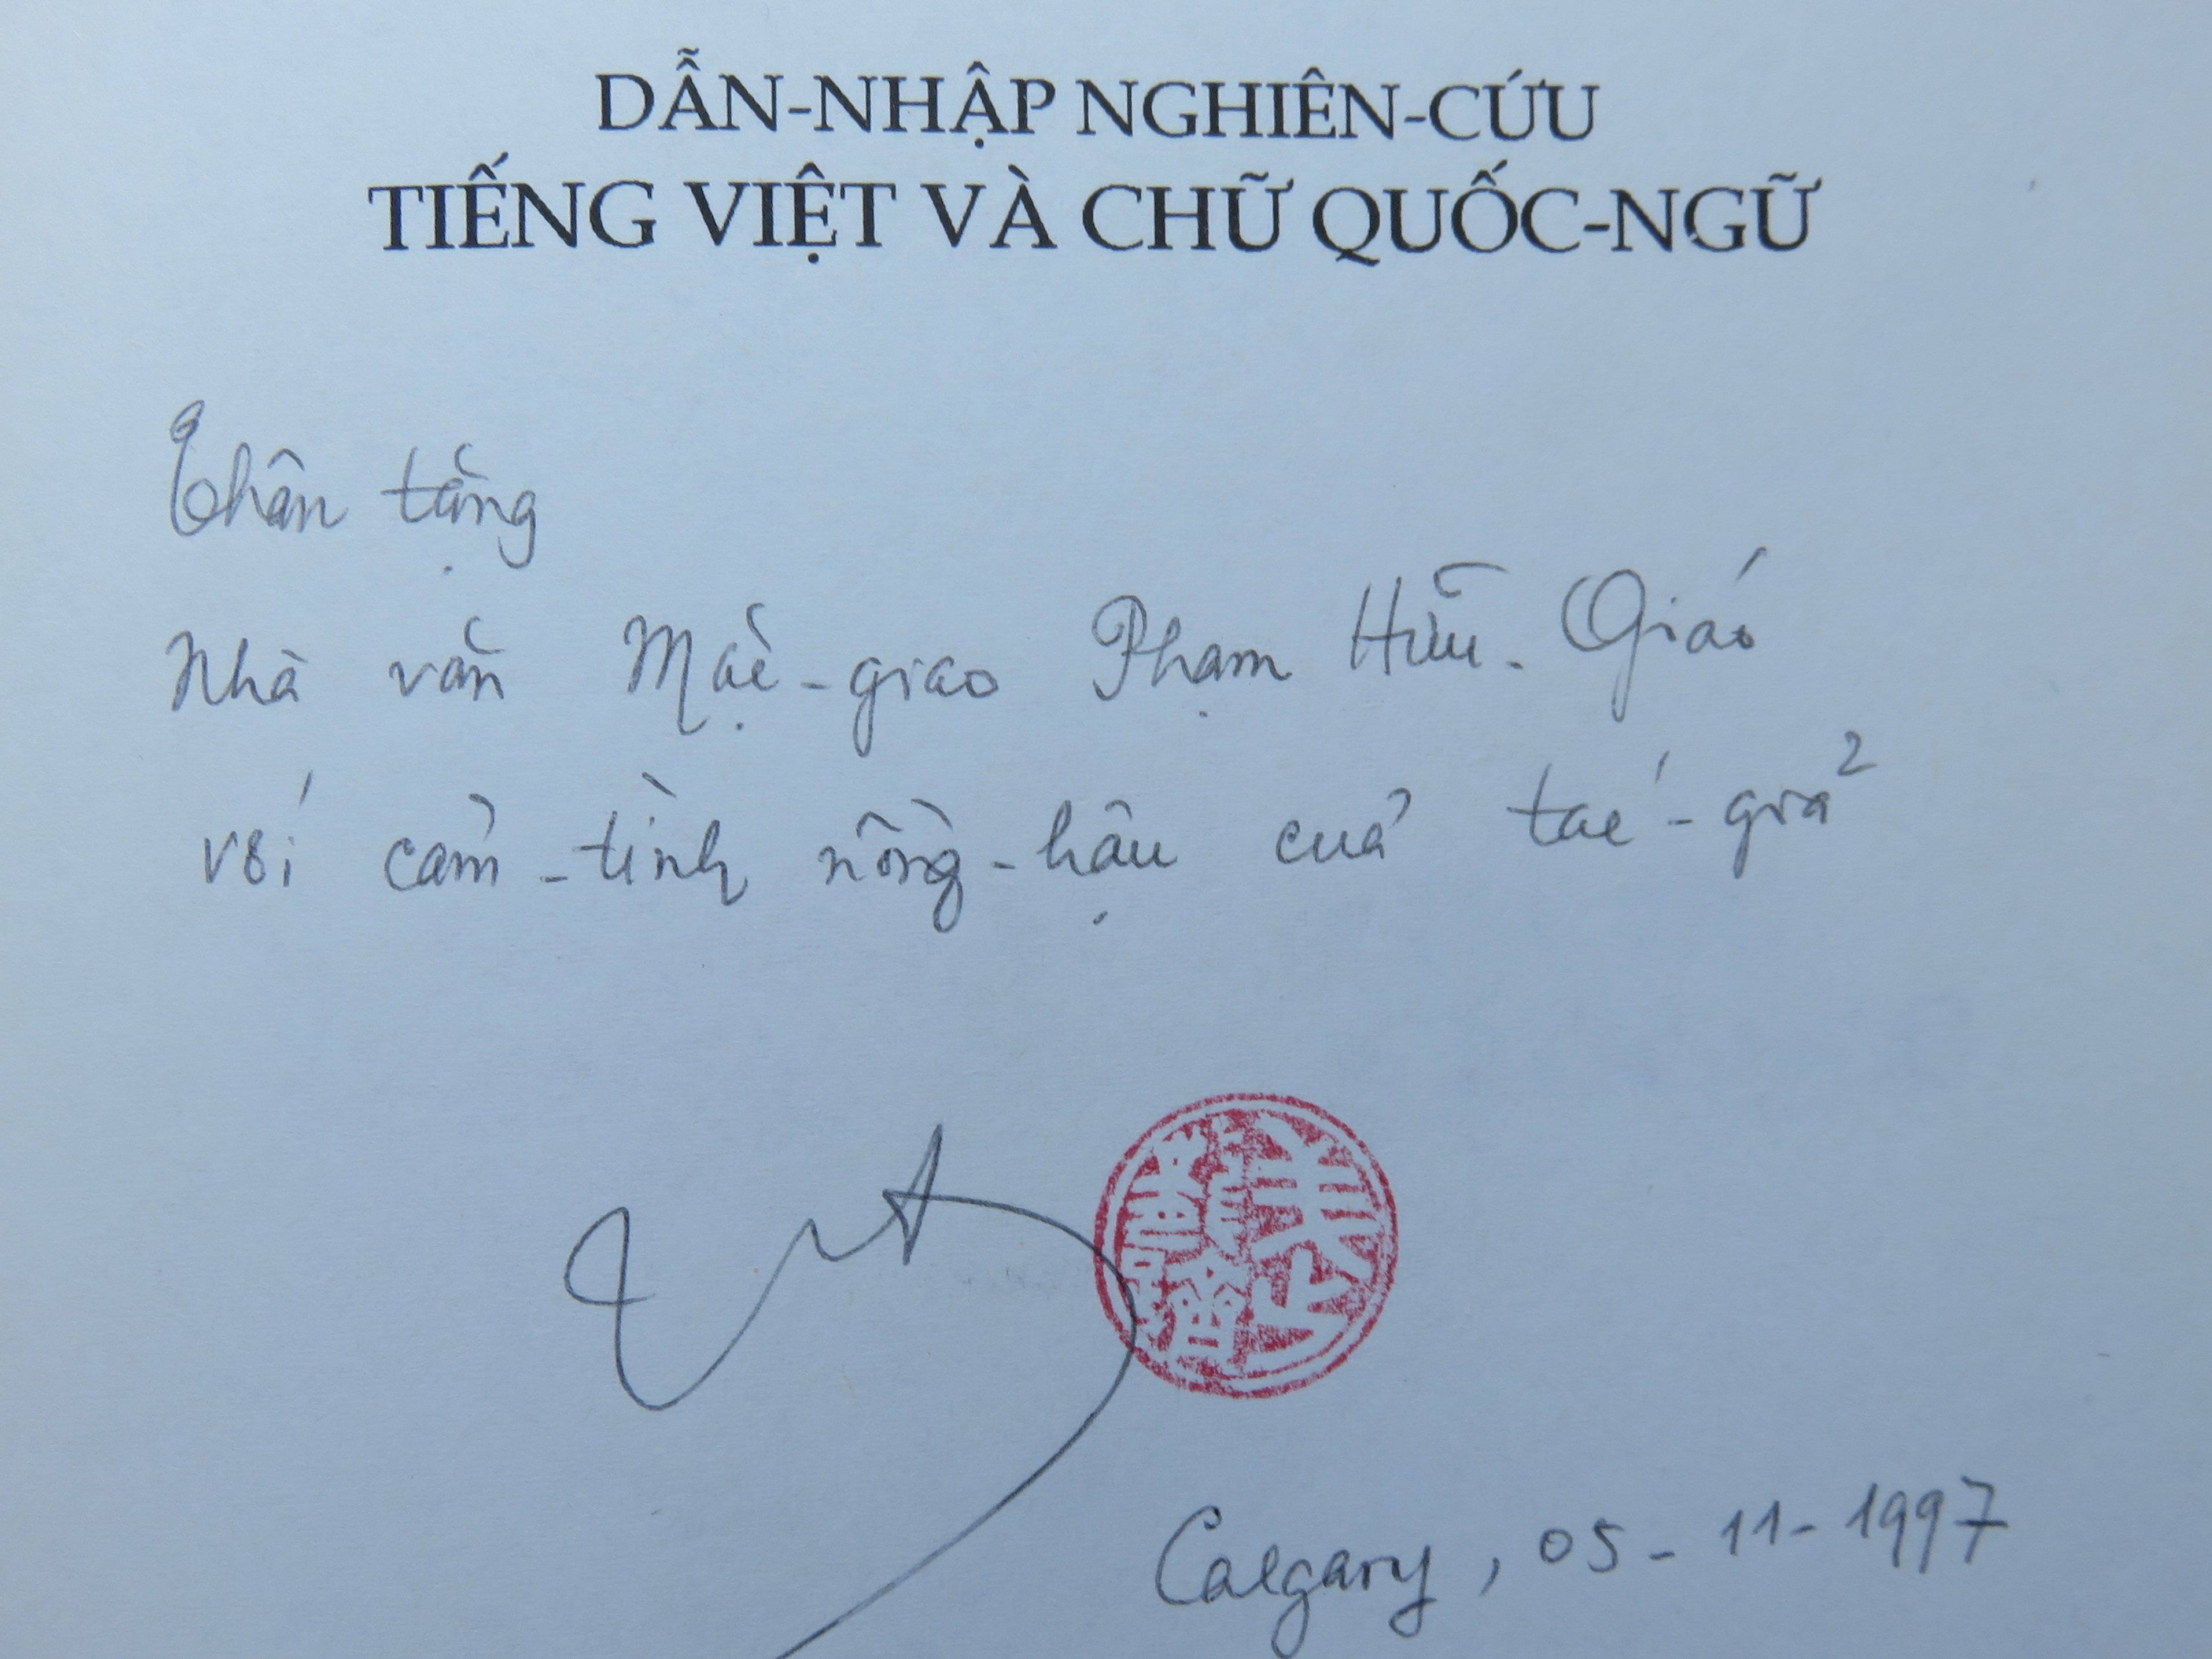 DẪN-NHẬP NGHIÊN-CỨU
TIẾNG VIỆT VÀ CHỮ QUỐC-NGỮ
Thân tặng
Nhà văn Mặc-giao Phạm Hữu-Giáo
với cảm-tình nồng-hậu của tác-giả
Calgary, 05-11-1997